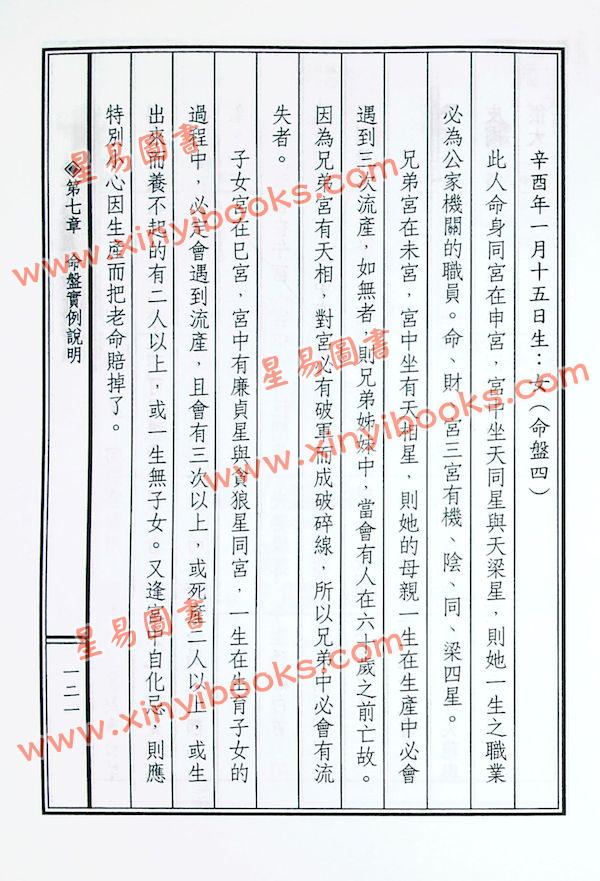 辛酉年一月十五日生：女（命盤四）
此人命身同宮在申宮，宮中坐天同星與天梁星，則她一生之職業
必為公家機關的職員。命、財、官三宮有機、陰、同、梁四星。
兄弟宮在未宮，宮中坐有天相星，則她的母親一生在生產中必會
遇到三次流產，如無者，則兄弟姊妹中，當會有人在六十歲之前亡故。
因為兄弟宮有天相，對宮必有破軍而成破碎線，所以兄弟中必會有流
失者。
子女宮在巳宮，宮中有廉貞星與貪狼星同宮，一生在生育子女的
過程中，必定會遇到流產，且會有三次以上，或死產二人以上，或生
出來而養不起的有二人以上，或一生無子女。又逢宮中自化忌，則應
特別小心因生產而把老命賠掉了。
第七章　命盤實例說明
一二一
星易圖書
www.xinyibooks.com
星易圖書
www.xinyibooks.com
星易圖書
www.xinyibooks.com